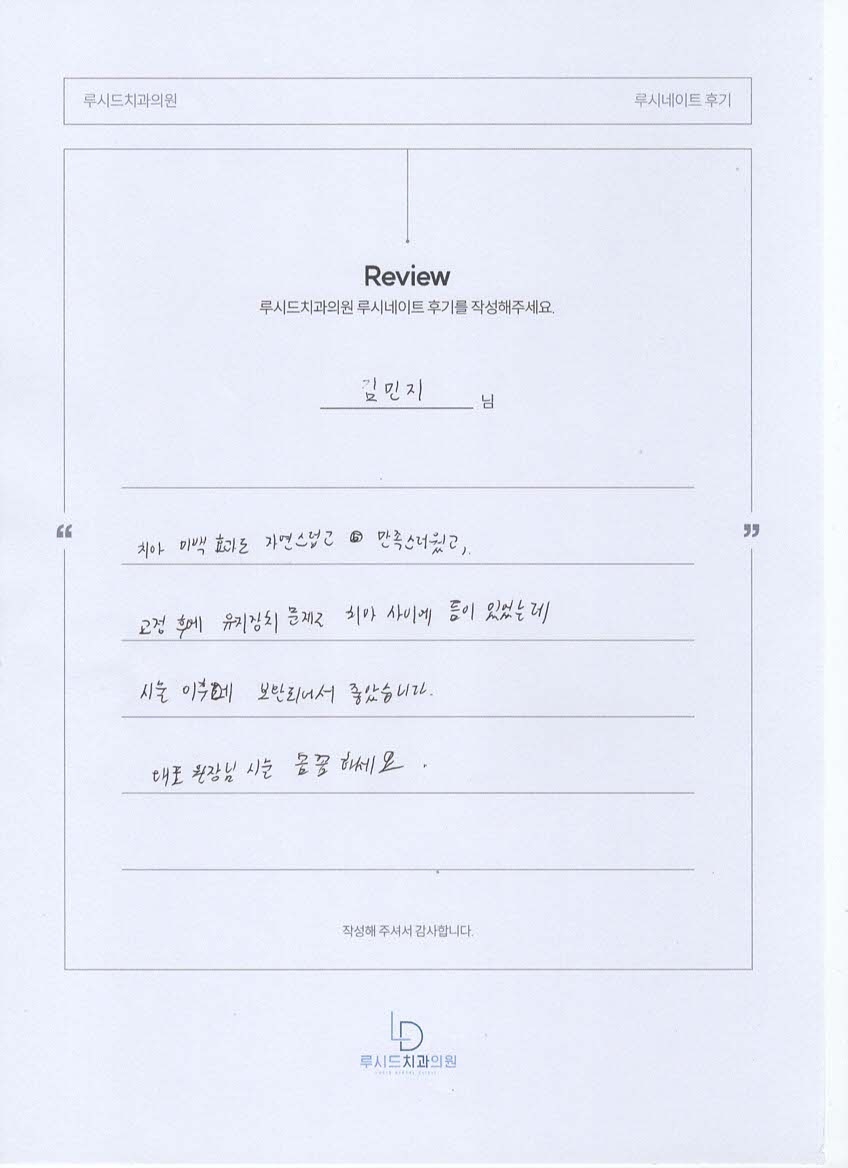 루시드치과의원 루시네이트 후기
Review
루시드치과의원 루시네이트 후기를 작성해주세요.
김민지 님
“ ”
치아 미백 효과도 자연스럽고 만족스러웠고,
교정 후에 유지장치 문제로 치아 사이에 틈이 있었는데
시술 이후에 보완되어서 좋았습니다.
대표 원장님 시술 꼼꼼 하세요.
작성해 주셔서 감사합니다.
LD
루시드치과의원